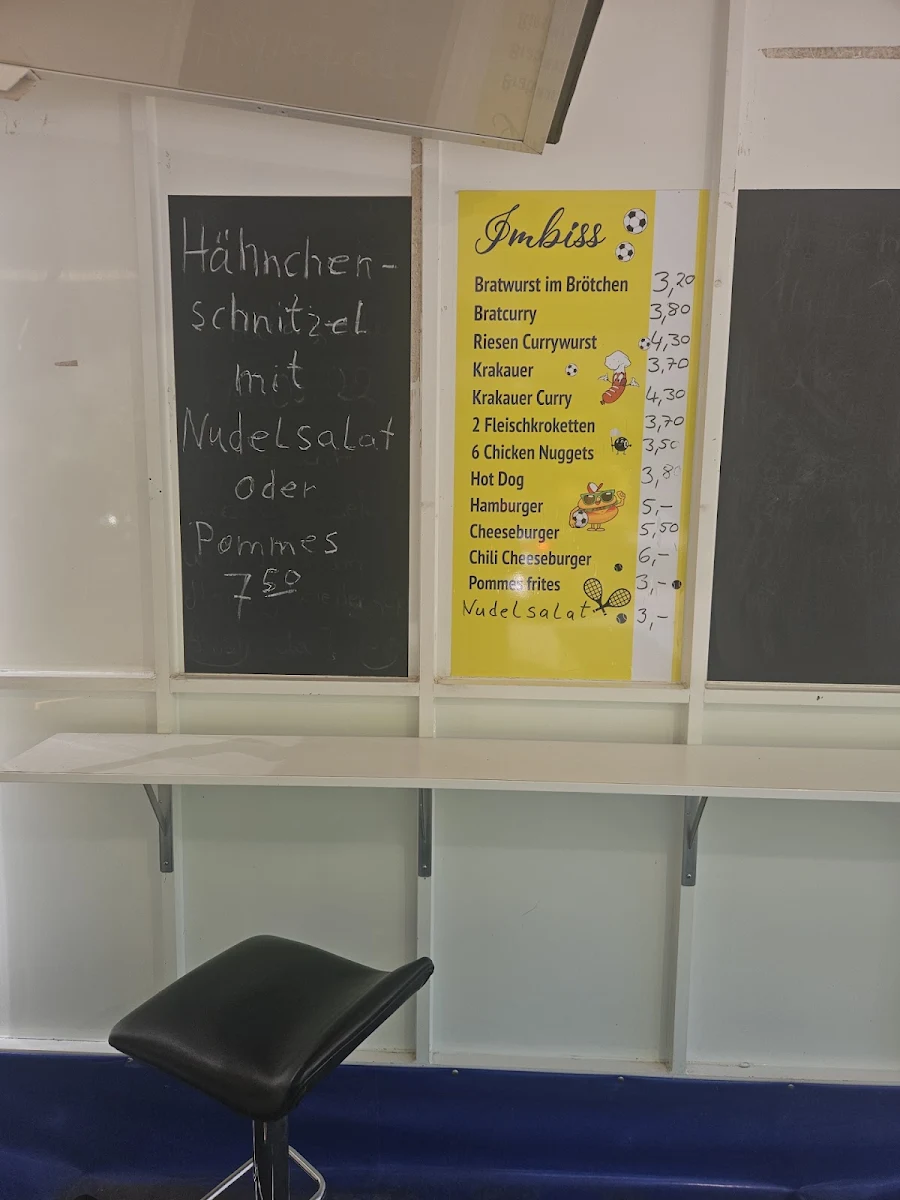 Hähnchen-
schnitzel
mit
Nudelsalat
oder
Pommes
7 50
Imbiss
Bratwurst im Brötchen 3,20
Bratcurry 3,80
Riesen Currywurst 4,30
Krakauer 3,70
Krakauer Curry 4,30
2 Fleischkroketten 3,70
6 Chicken Nuggets 3,50
Hot Dog 3,80
Hamburger 5,-
Cheeseburger 5,50
Chili Cheeseburger 6,-
Pommes frites 3,-
Nudelsalat 3,-